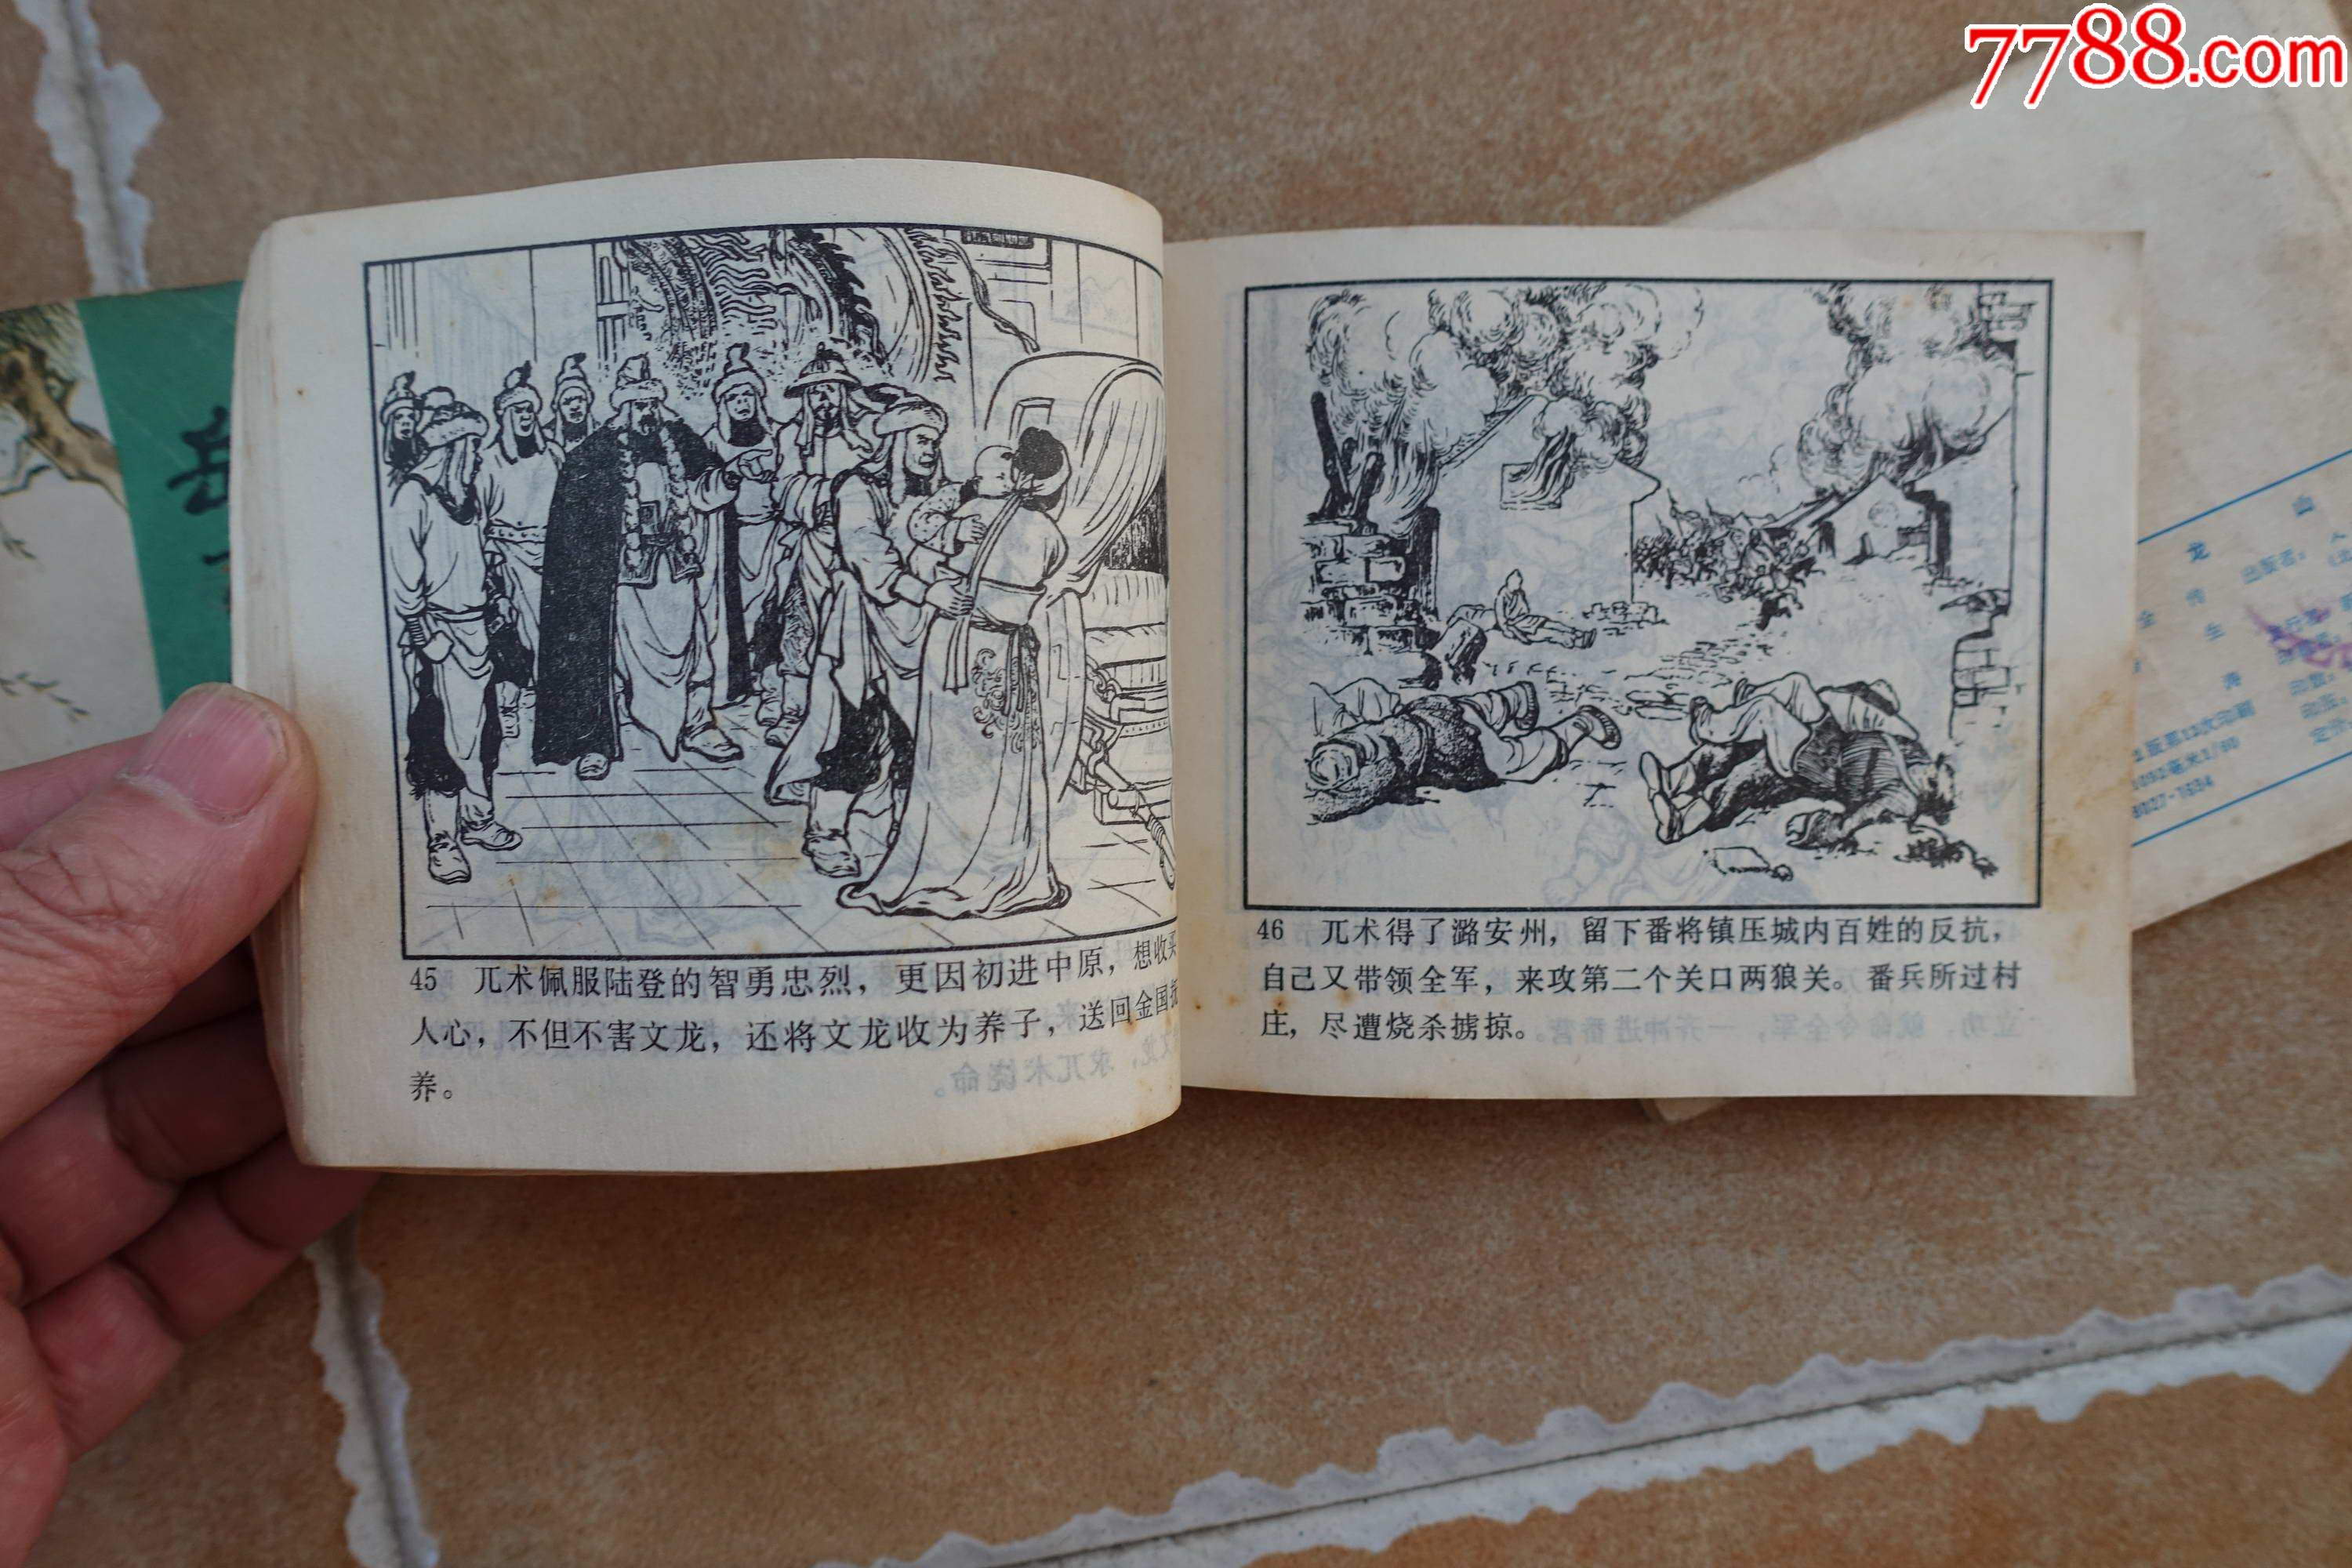 7788.com
岳
45 兀术佩服陆登的智勇忠烈，更因初进中原，想收买
人心，不但不害文龙，还将文龙收为养子，送回金国抚
养。
46 兀术得了潞安州，留下番将镇压城内百姓的反抗，
自己又带领全军，来攻第二个关口两狼关。番兵所过村
庄，尽遭烧杀掳掠。
龙
全 传
版第13次印刷
1092毫米1/60
8027·7634